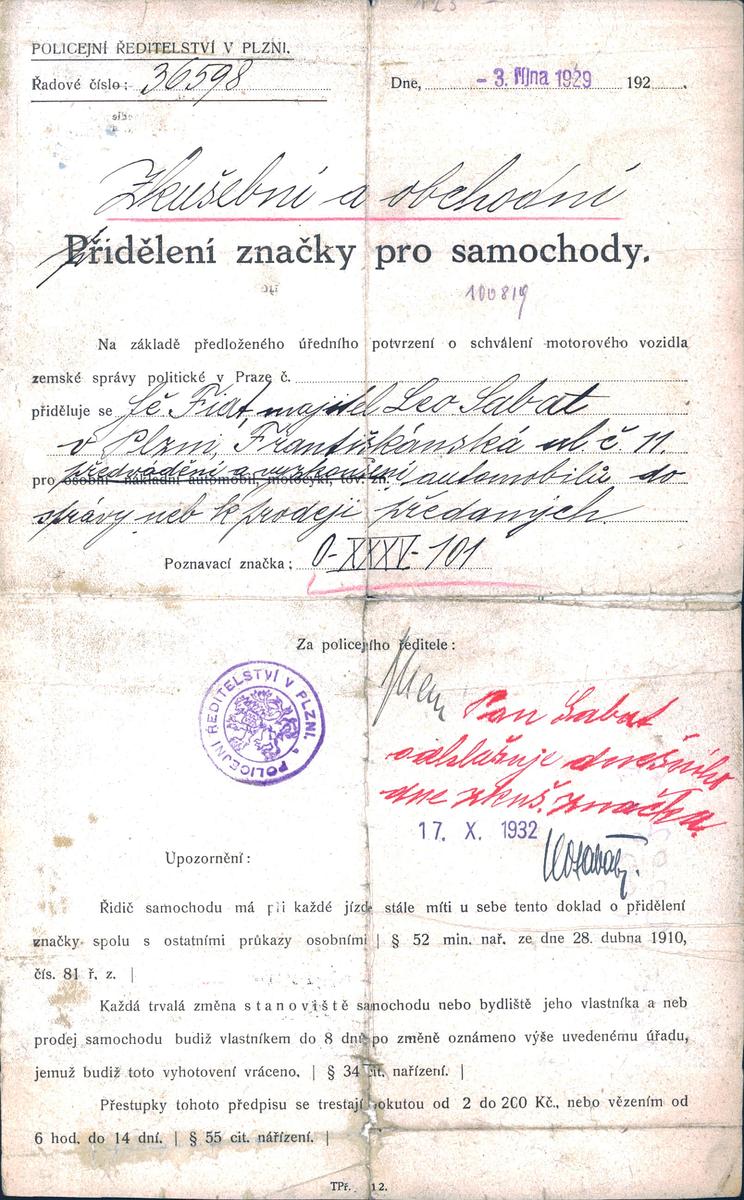 POLICEJNÍ ŘEDITELSTVÍ V PLZNI.
Řadové číslo: 36598
Dne, - 3. října 1929 192 .
Zkušební a obchodní
Přidělení značky pro samochody.
100819
Na základě předloženého úředního potvrzení o schválení motorového vozidla
zemské správy politické v Praze č.
přiděluje se fě Fiat, majitel Leo Sabat
v Plzni, Františkánská ul č. 11.
pro osobní nákladní automobil, motocykl, tov. m.
předvádění a vyzkoušení automobilů do
správy neb k prodeji předaných
Poznavací značka: O-XXXV-101
Za policejního ředitele:
POLICEJNÍ ŘEDITELSTVÍ V PLZNI.
Pan Sabat
odhlašuje dnešního
dne zkuš. značku.
17. X. 1932
Upozornění:
Řidič samochodu má při každé jízdě stále míti u sebe tento doklad o přidělení
značky spolu s ostatními průkazy osobními | § 52 min. nař. ze dne 28. dubna 1910,
čís. 81 ř. z. |
Každá trvalá změna stanoviště samochodu nebo bydliště jeho vlastníka a neb
prodej samochodu budiž vlastníkem do 8 dní po změně oznámeno výše uvedenému úřadu,
jemuž budiž toto vyhotovení vráceno. | § 34 cit. nařízení. |
Přestupky tohoto předpisu se trestají pokutou od 2 do 200 Kč., nebo vězením od
6 hod. do 14 dní. | § 55 cit. nářízení. |
TPř. 12.